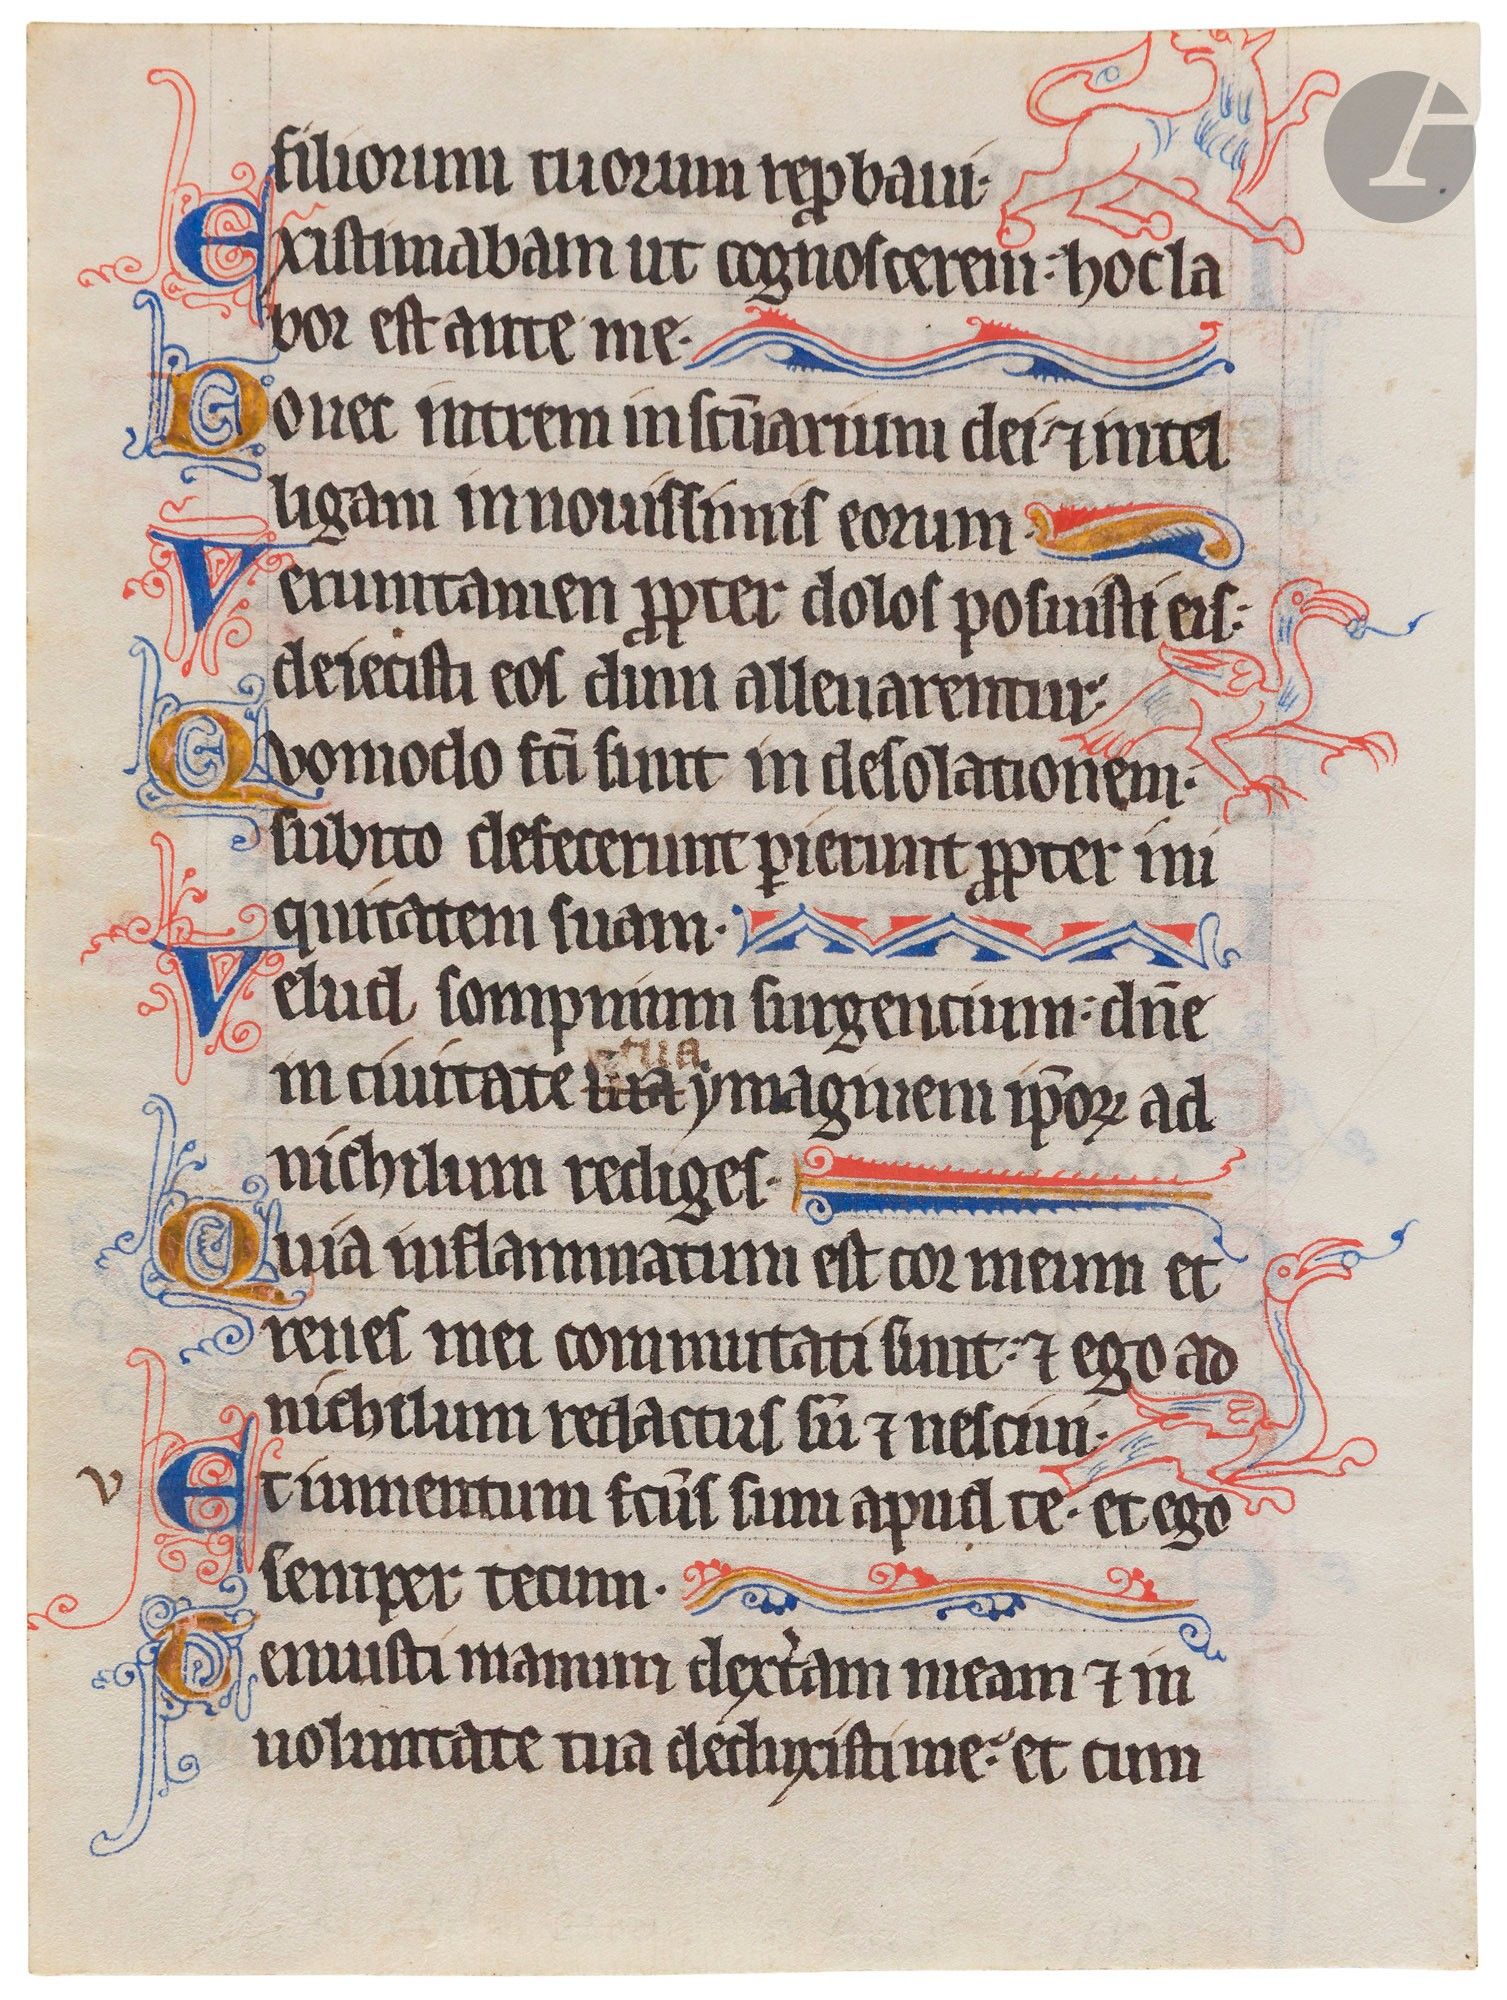 filiorum tuorum rep̱baui·
Existimabam ut cognoscerem: hoc la
bor est ante me·
Donec intrem in scūarium dei: ⁊ intel
ligam in nouissimis eorum·
Veruntamen ꝓpter dolos posuisti eis:
deiecisti eos dum alleuarentur·
Quomodo fc̄i sunt in desolationem·
subito defecerunt ꝑierunt ꝓpter ini
quitatem suam·
Velud sompnium surgencium: dn̄e
tua
in ciuitate sua ymaginem ip̄oꝝ ad
nichilum rediges·
Quia inflammatum est cor meum et
renes mei commutati sunt: ⁊ ego ad
nichilum redactus sū ⁊ nesciui·
v
Et iumentum fc̄us sum apud te· et ego
semper tecum·
Tenuisti manum dext̾am meam ⁊ in
uoluntate tua deduxisti me: et cum